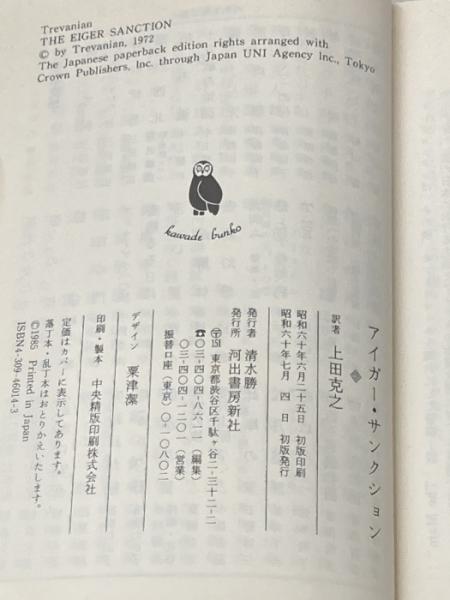 Trevanian
THE EIGER SANCTION
© by Trevanian, 1972
The Japanese paperback edition rights arranged with
Crown Publishers, Inc. through Japan UNI Agency Inc., Tokyo
kawade bunko
アイガー・サンクション
訳者 上田克之
昭和六十年六月二十五日 初版印刷
昭和六十年七月 四日 初版発行
発行者 清水勝
発行所 河出書房新社
〒151 東京都渋谷区千駄ケ谷二-三十二-二
☎〇三-四〇四-八六一一(編集)
〇三-四〇四-一二〇一(営業)
振替口座(東京)〇-一〇八〇二
デザイン 粟津潔
印刷・製本 中央精版印刷株式会社
定価はカバーに表示してあります。
落丁本・乱丁本はおとりかえいたします。
©1985 Printed in Japan
ISBN4-309-46014-3